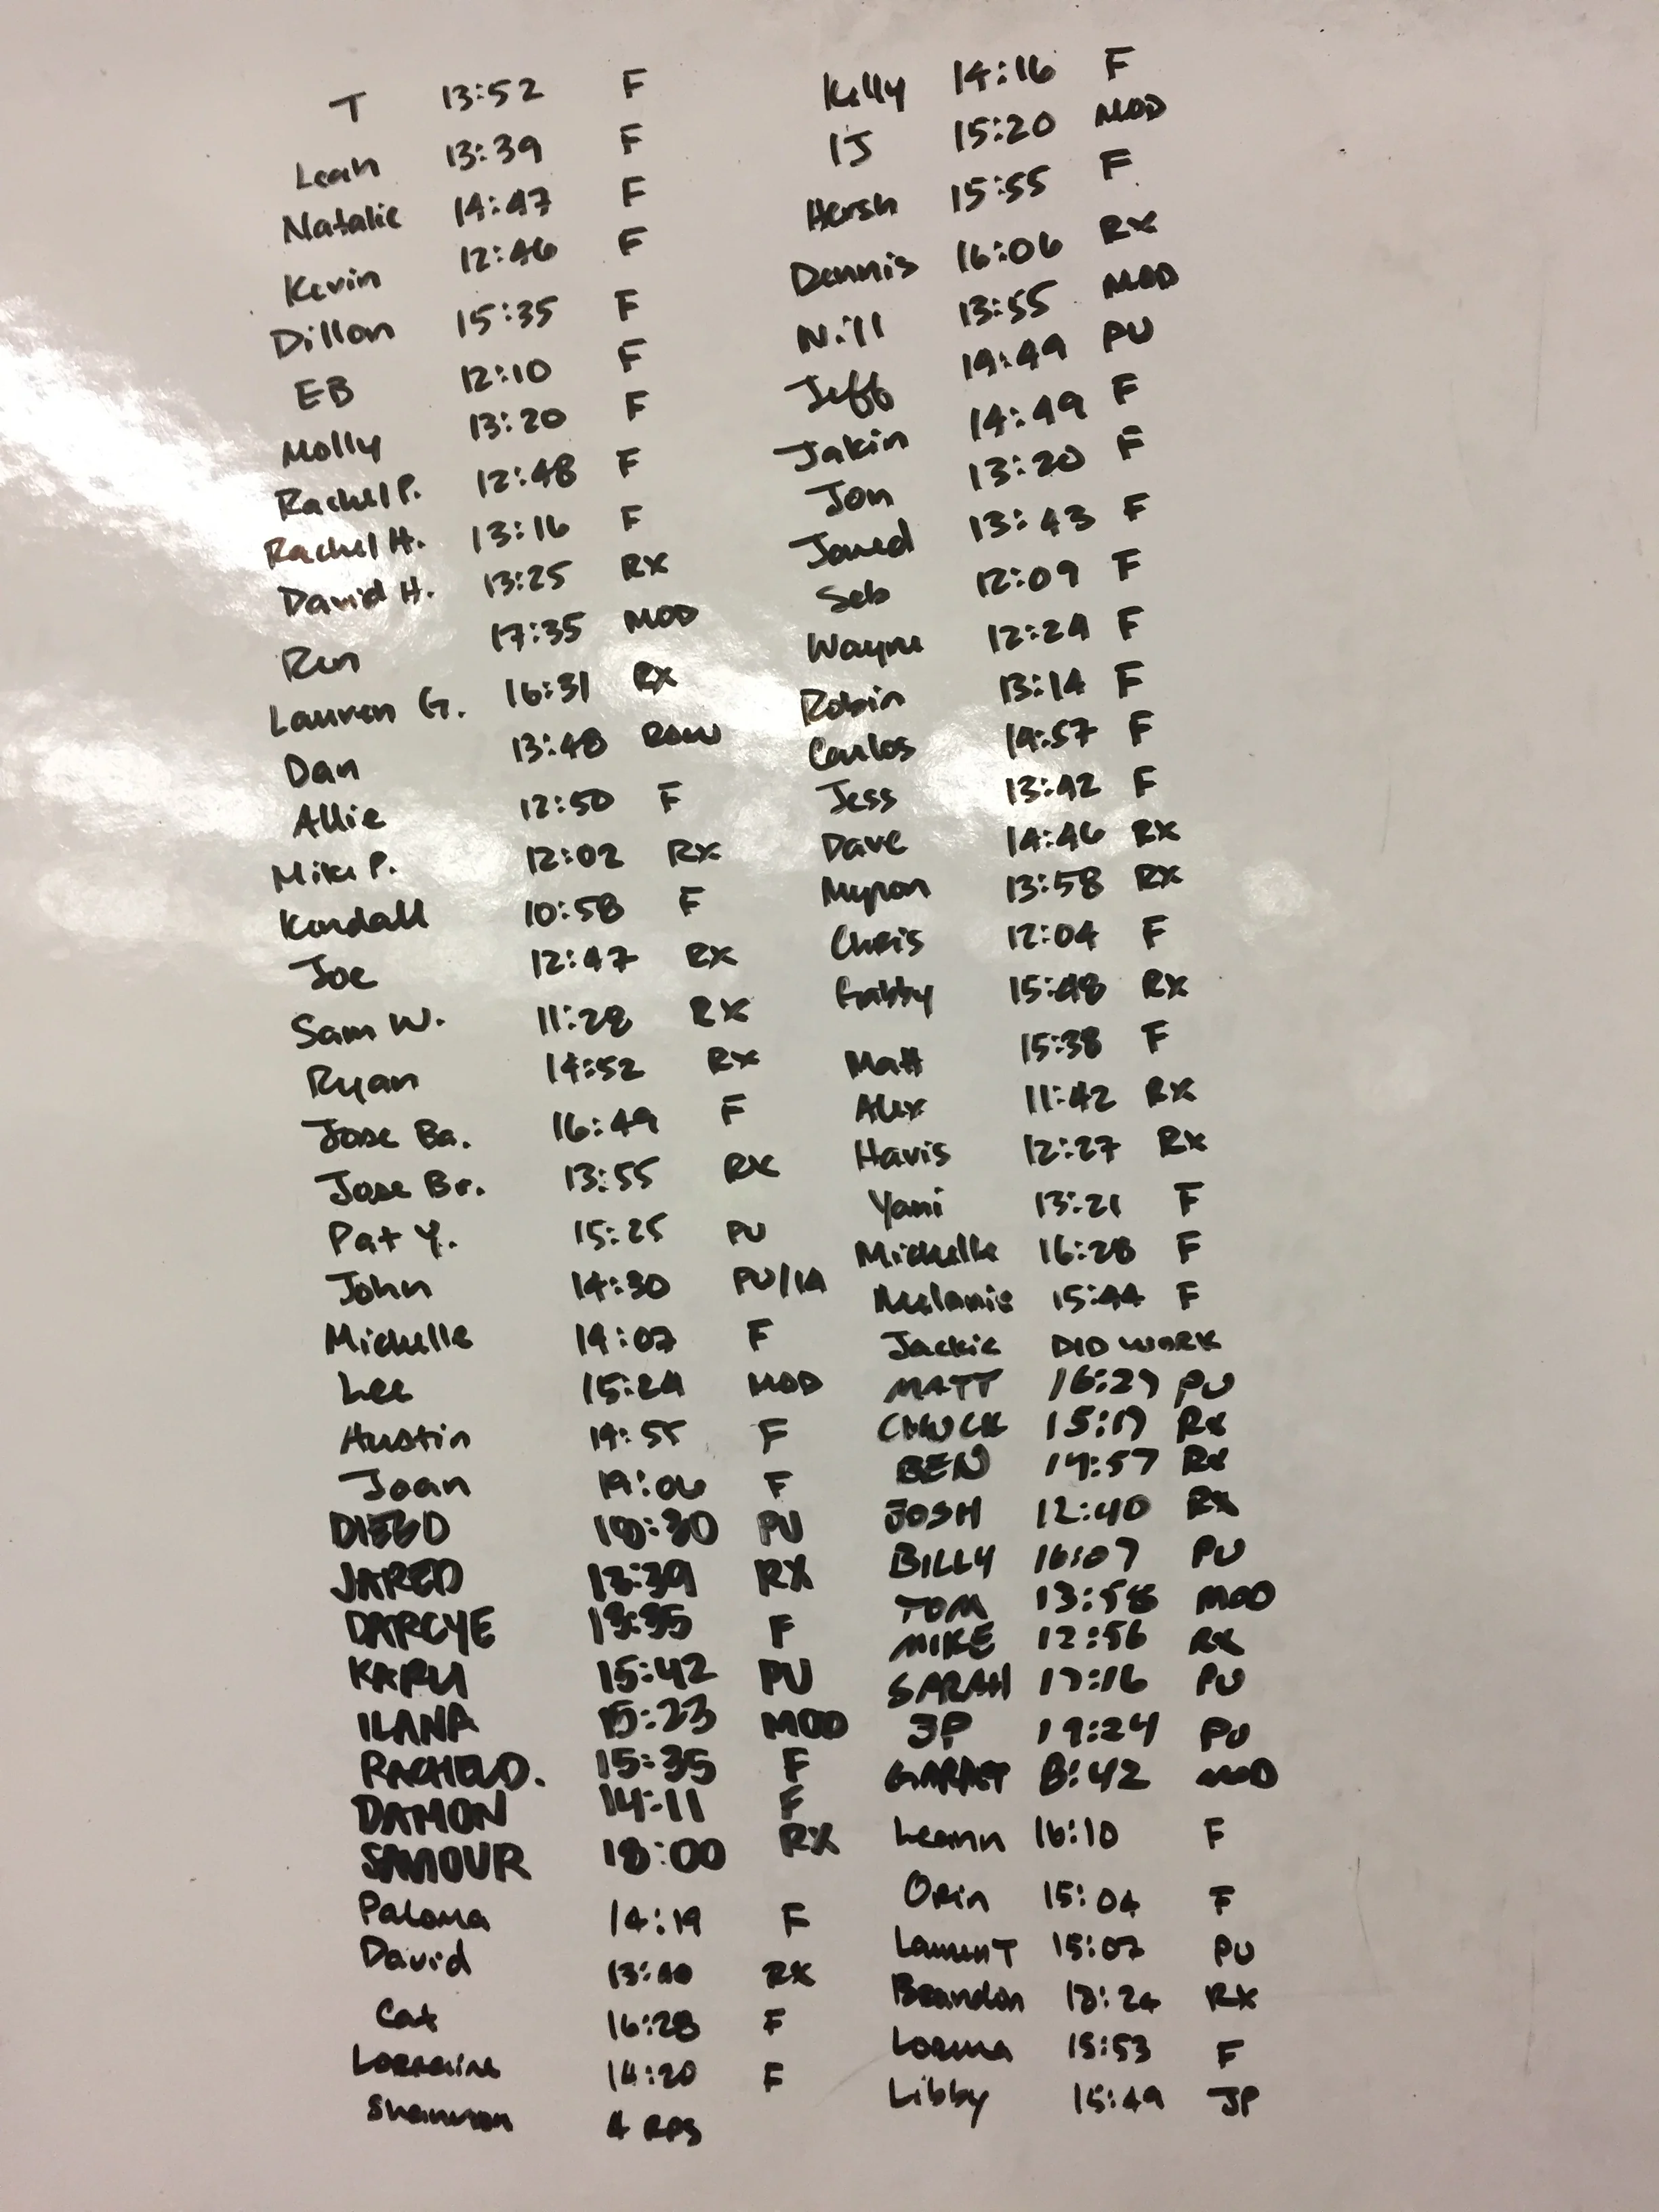 T 13:52 F
Leah 13:39 F
Natalie 14:47 F
Kevin 12:46 F
Dillon 15:35 F
EB 12:10 F
Molly 13:20 F
Rachel P. 12:48 F
Rachel H. 13:16 F
David H. 13:25 RX
Ren 17:35 MOD
Lauren G. 16:31 RX
Dan 13:48 ROW
Allie 12:50 F
Mike P. 12:02 RX
Kendall 10:58 F
Joe 12:47 RX
Sam W. 11:28 RX
Ryan 14:52 RX
Jose Ba. 16:49 F
Jose Br. 13:55 RX
Pat Y. 15:25 PU
John 14:30 PU/
Michelle 14:07 F
Lee 15:24 MOD
Austin 14:55 F
Joan F
DIEGO 18:30 PU
JARED 13:39 RX
DARCYE 13:35 F
KAPU 15:42 PU
ILANA 15:23 MOD
RACHEL D. 15:35 F
DAMON 14:11 F
SAMOUR 18:00 RX
Paloma 14:19 F
David 13:40 RX
Cat 16:28 F
Lorraine 14:20 F
Shannon 4 RPS
Kelly 14:16 F
IJ 15:20 MOD
Hersh 15:55 F
Dennis 16:06 RX
Nill 13:55 MOD
Jeff 14:49 PU
Jakin 14:49 F
Jon 13:20 F
Jared 13:43 F
Seb 12:09 F
Wayne 12:24 F
Robin 13:14 F
Carlos 14:57 F
Jess 13:42 F
Dave 14:46 RX
Myron 13:58 RX
Chris 12:04 F
Gabby 15:48 RX
Matt 15:38 F
Alex 11:42 RX
Havis 12:27 RX
Yani 13:21 F
Michelle 16:28 F
Melanie 15:44 F
Jackie DID WORK
MATT 16:27 PU
CHUCK 15:17 RX
BEN 14:57 RX
JOSH 12:40 RX
BILLY 16:07 PU
TOM 13:58 MOD
MIKE 12:56 RX
SARAH 17:16 PU
JP 19:24 PU
GARRET 13:42 MOD
Leann 16:10 F
Orin 15:04 F
Lauren T 15:07 PU
Brandon RX
Lorena 15:53 F
Libby 15:49 JP